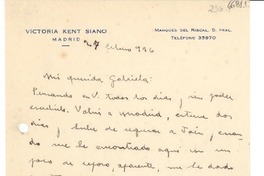 VICTORIA KENT SIANO
MADRID
MARQUES DEL RISCAL, 5. PRAL.
TELÉFONO 35970
27 1936
Mi querida Gabriela:
Pensando en V. todos los días, sin poder
escribirle. Volví a Madrid, estuve dos
días y hube de regresar a Jaén, cuando
me he encontrado aquí un
poco de reposo aparente, me he dado